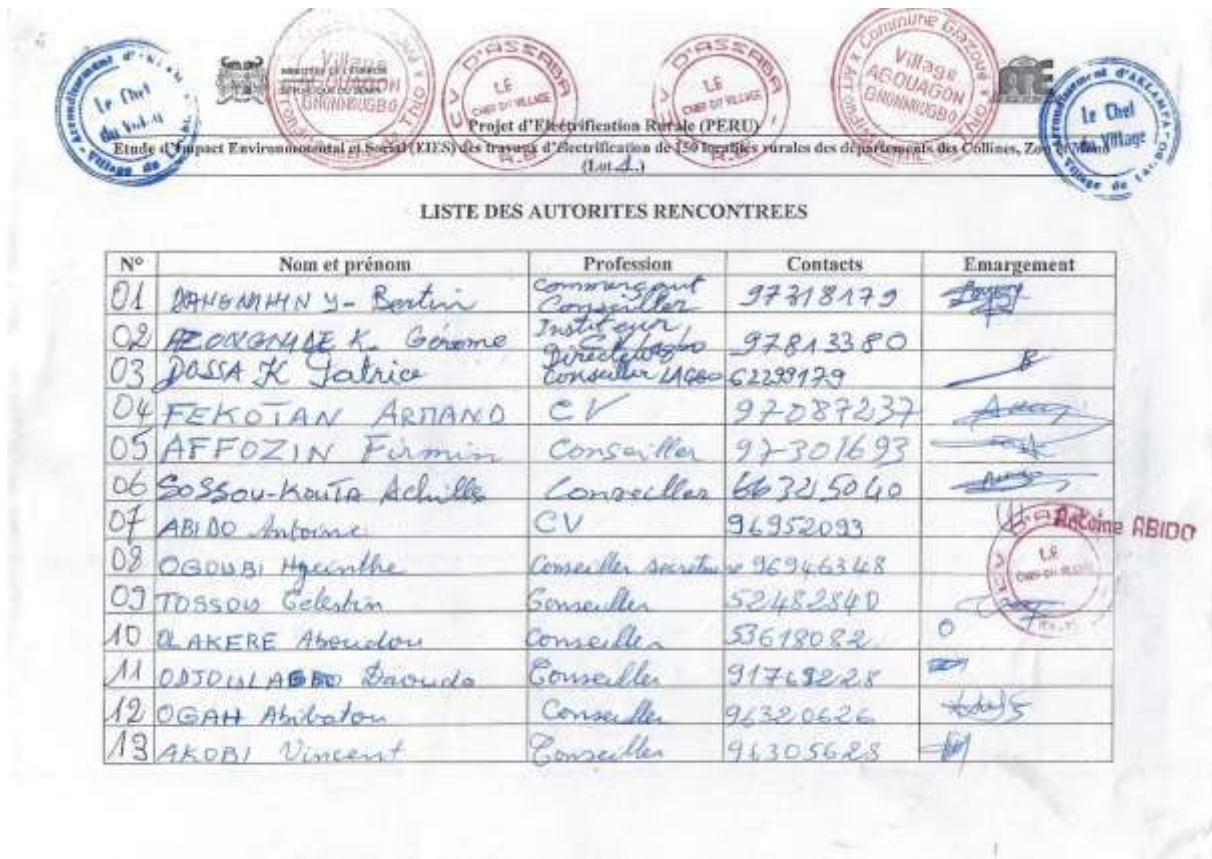 Arrondissement d'
Le Chef
Village de
MINISTERE DE L'ENERGIE
REPUBLIQUE DU BENIN
Village
AGOUAGON
GNONNOUGBO
CV D'ASSABA
LE
CHEF DU VILLAGE
CV D'ASSABA
LE
CHEF DU VILLAGE
Commune Glazoué
Village
AGOUAGON
GNONNOUGBO
Arrondissement d'AKLAMPA
Le Chef
du Village
Projet d'Electrification Rurale (PERU)
Etude d'Impact Environnemental et Social (EIES) des travaux d'électrification de 150 localités rurales des départements des Collines, Zou et Mono
(Lot 1.)
LISTE DES AUTORITES RENCONTREES
N° Nom et prénom Profession Contacts Emargement
01 Y- Bertin Commerçant Conseiller 97318179
02 K. Gérome Instituteur, 97813380
03 DOSSA K Patrice Directeur Conseiller 62299179
04 FEKOTAN ARMAND CV 97087237
05 AFFOZIN Firmin Conseiller 97301693
06 SOSSOU-KOUTA Achille Conseiller 66325040
07 ABIDO Antoine CV 96952093 Antoine ABIDO
08 OGOUBI Hyacinthe Conseiller secrétaire 96946348
09 TOSSOU Célestin Conseiller 52482840
10 OLAKERE Aboudou Conseiller 53618082
11 Daouda Conseiller 91769228
12 OGAH Abibatou Conseiller 96320626
13 AKOBI Vincent Conseiller 96305628